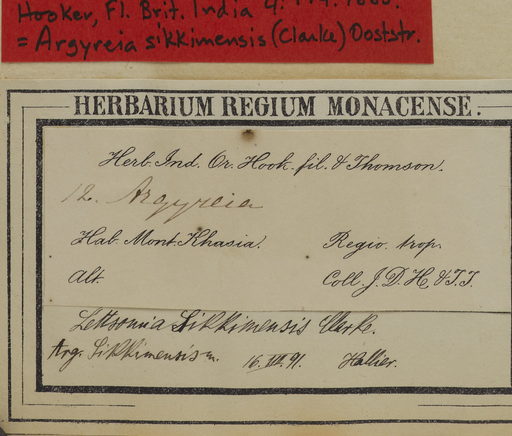 Hooker, Fl. Brit. India 4:
= Argyreia sikkimensis (Clarke) Ooststr.
HERBARIUM REGIUM MONACENSE.
Herb. Ind. Or. Hook. fil. & Thomson.
12. Argyreia
Hab. Mont. Khasia. Regio. trop.
Alt. Coll. J. D. H. & T. T.
Lettsomia Sikkimensis Clerke.
Arg. Sikkimensis m. 16. VII. 91. Hallier.